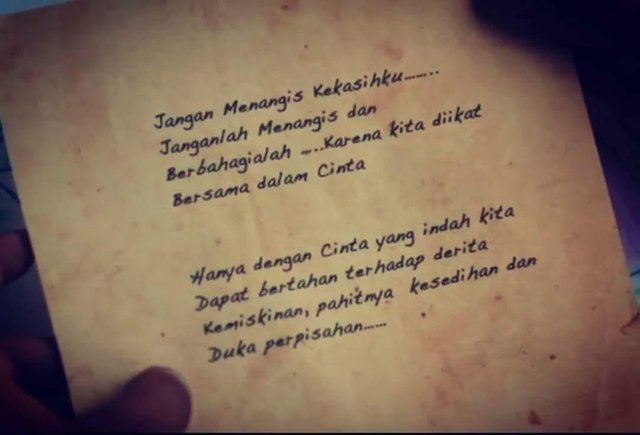 Jangan Menangis Kekasihku........
Janganlah Menangis dan
Berbahagialah .....Karena kita diikat
Bersama dalam Cinta
Hanya dengan Cinta yang indah kita
Dapat bertahan terhadap derita
Kemiskinan, pahitnya kesedihan dan
Duka perpisahan......